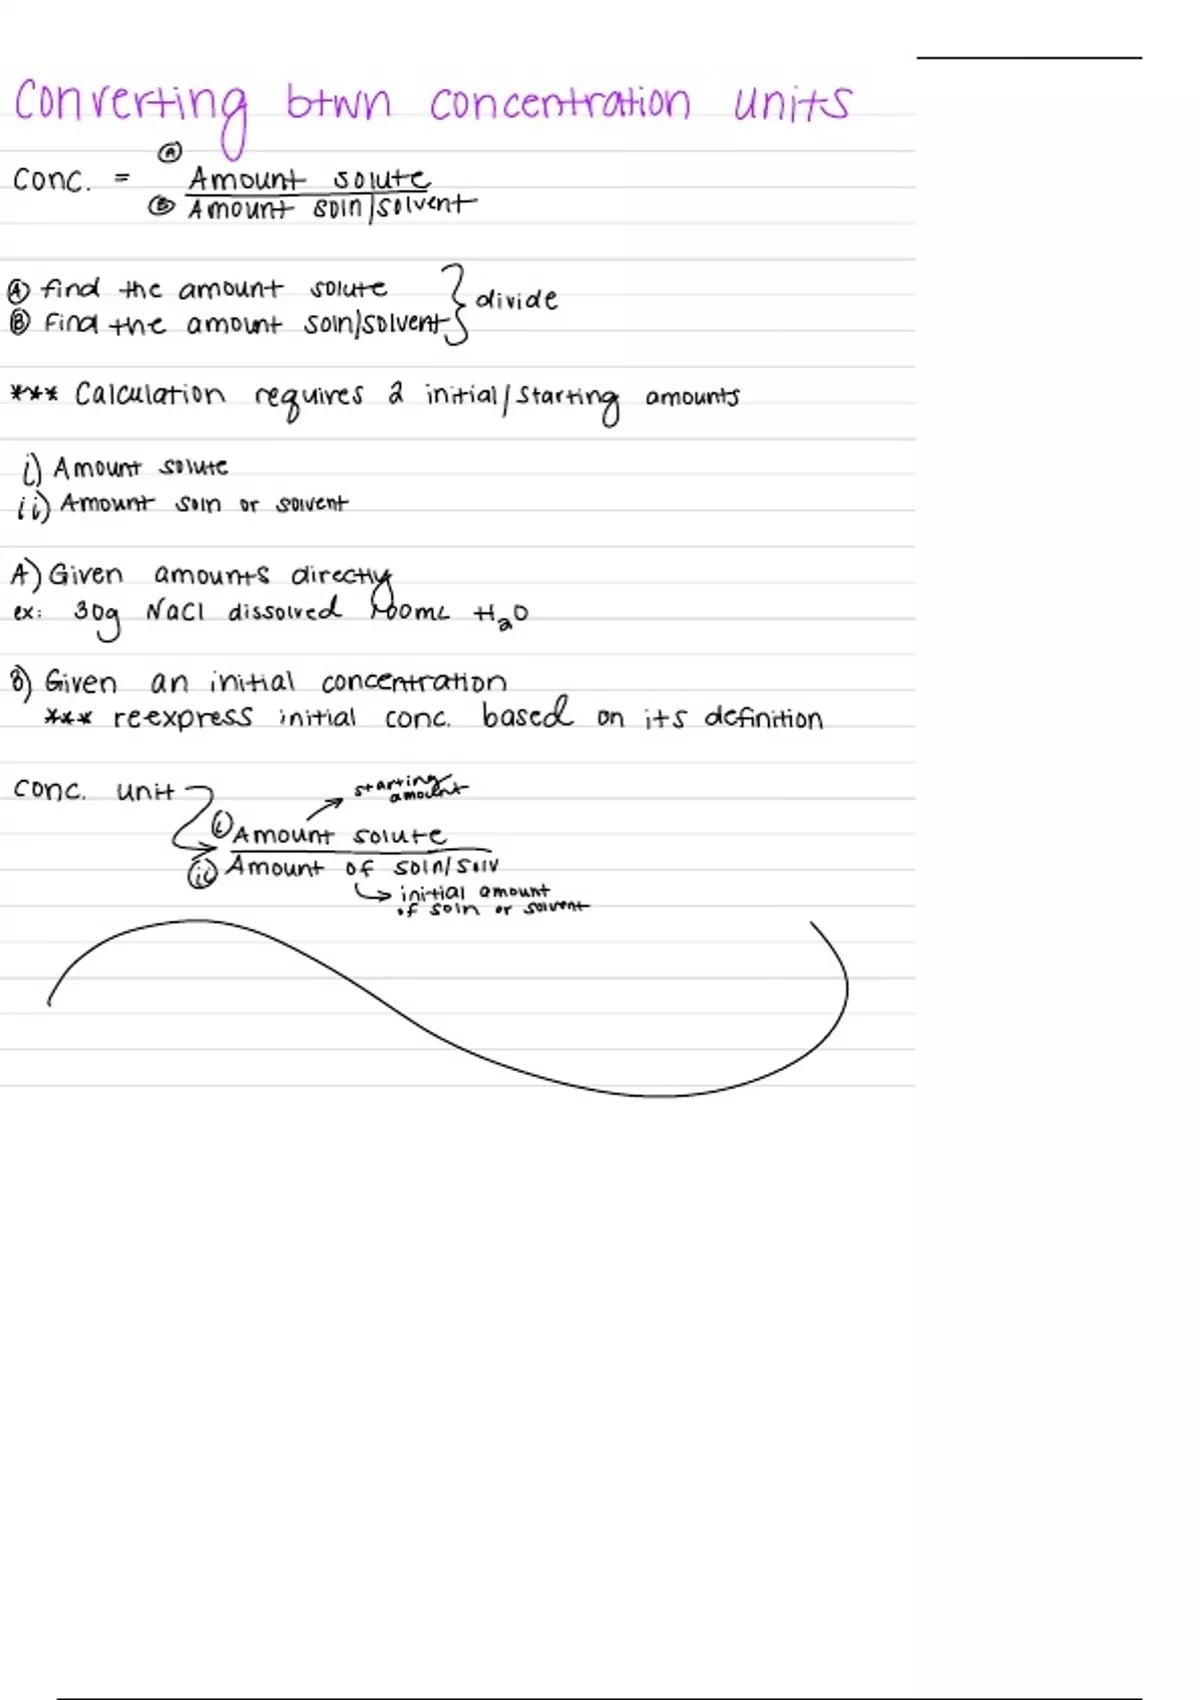 Converting btwn concentration units
Ⓐ
Conc. = Amount solute
Ⓑ Amount soln/solvent
Ⓐ find the amount solute
Ⓑ Find the amount soln/solvent } divide
*** Calculation requires 2 initial/starting amounts
i) Amount solute
ii) Amount soln or solvent
A) Given amounts directly
ex: 30g NaCl dissolved 100mL H₂O
B) Given an initial concentration
*** reexpress initial conc. based on its definition
conc. unit
starting
amount
ⓘ Amount solute
ii Amount of soln/solv
initial amount
of soln or solvent